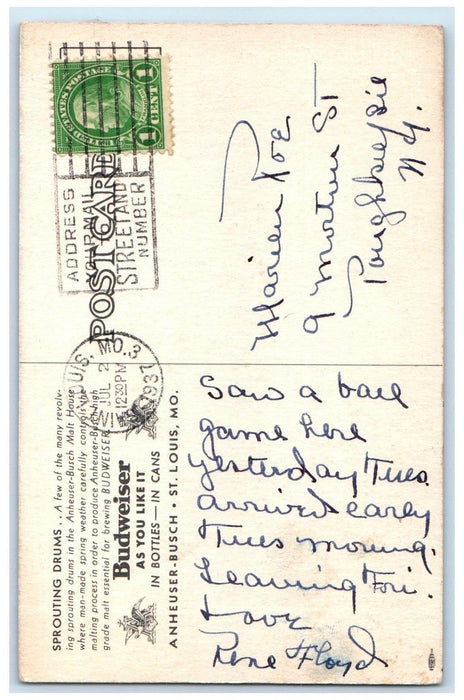 SPROUTING DRUMS . . A few of the many revolv-
ing sprouting drums in the Anheuser-Busch Malt House
where man-made spring weather carefully controls the
malting process in order to produce Anheuser-Busch high
grade malt essential for brewing BUDWEISER
Budweiser
AS YOU LIKE IT
IN BOTTLES—IN CANS
ANHEUSER-BUSCH • ST. LOUIS, MO.
POST CARD
UNITED STATES POSTAGE
1 CENT 1
ADDRESS
YOUR MAIL TO
STREET AND
NUMBER
LOUIS, MO. 3
JUL 2
12 30 PM
1937
Saw a ball
game here
yesterday Tues.
arrived early
Tues morning.
Leaving Fri.
Love
Rene Floyd
Marien Poe
9 Morton ST
Poughkeepsie
N.Y.